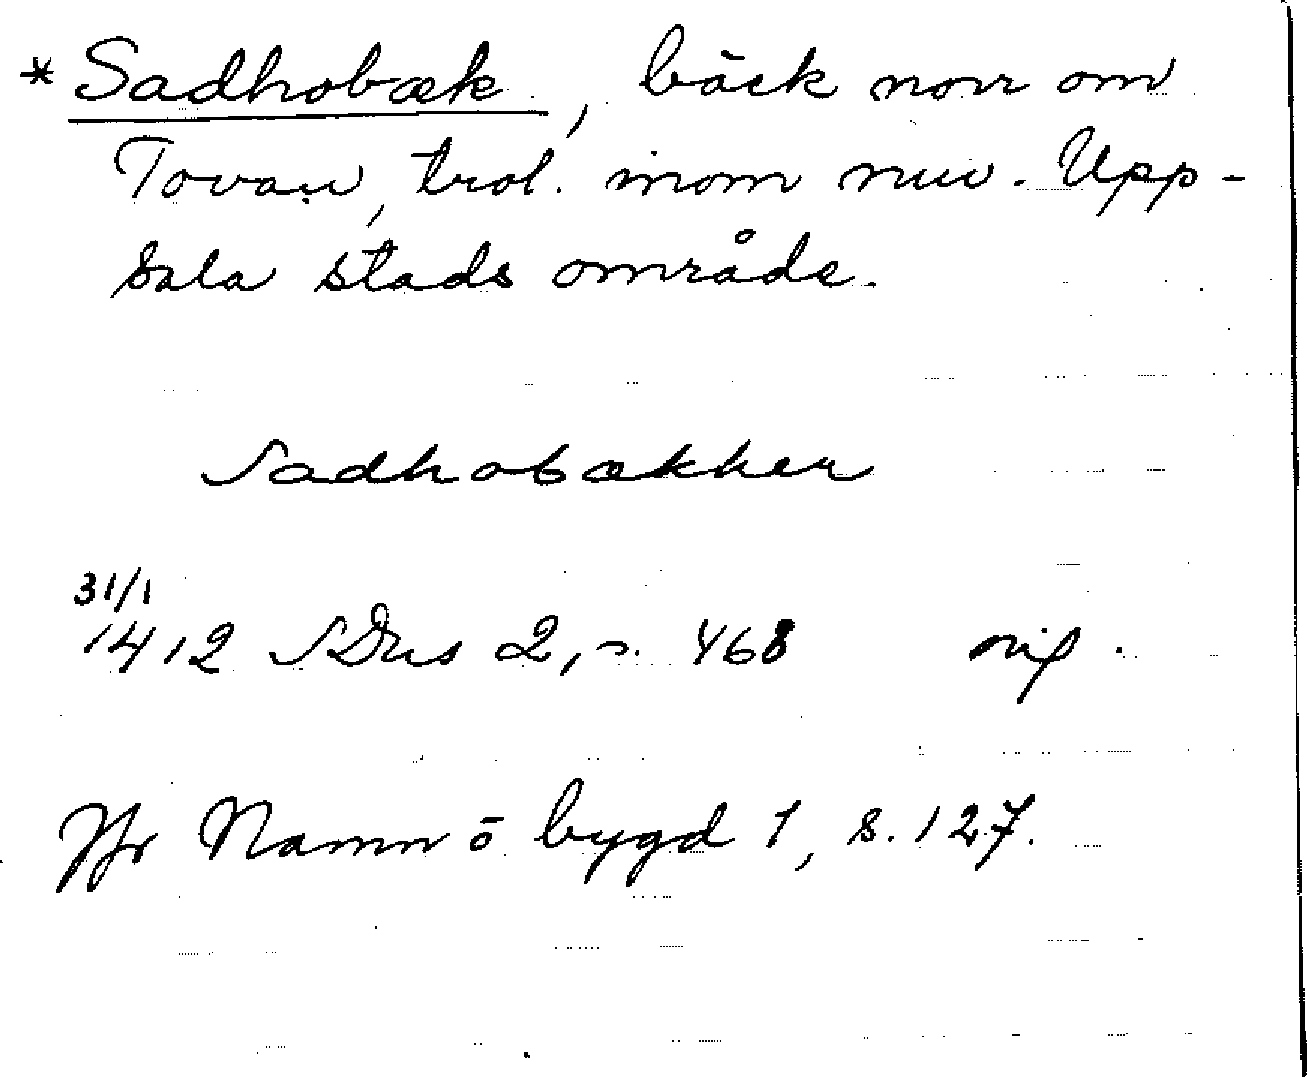 *Sadhobæk, bäck norr om
Tovan, trol. inom nuv. Upp-
sala stads område.
Sadhobækken
31/1
1412 SDns 2, s. 468 orig.
Jfr Namn o bygd 1, s. 127.